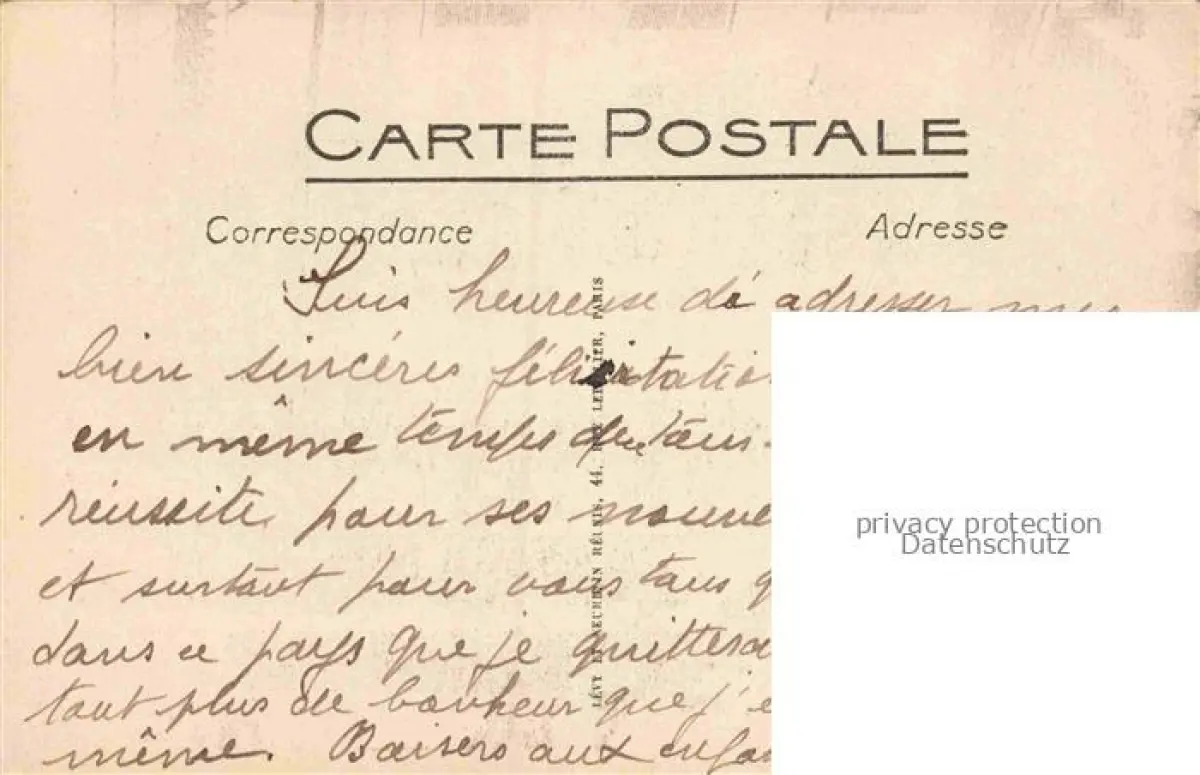 CARTE POSTALE
Correspondance
Adresse
Suis heureuse de adresser mes
bien sincéres félicitatio
en même temps
réussite pour ses nouve
et surtout pour vous tous q
dans ce pays que je quittera
tout plus de bonheur que j'e
même. Baisers aux enfa
LÉVY ET NEURDEIN RÉUNIS, 44, RUE LETELLIER, PARIS
privacy protection
Datenschutz